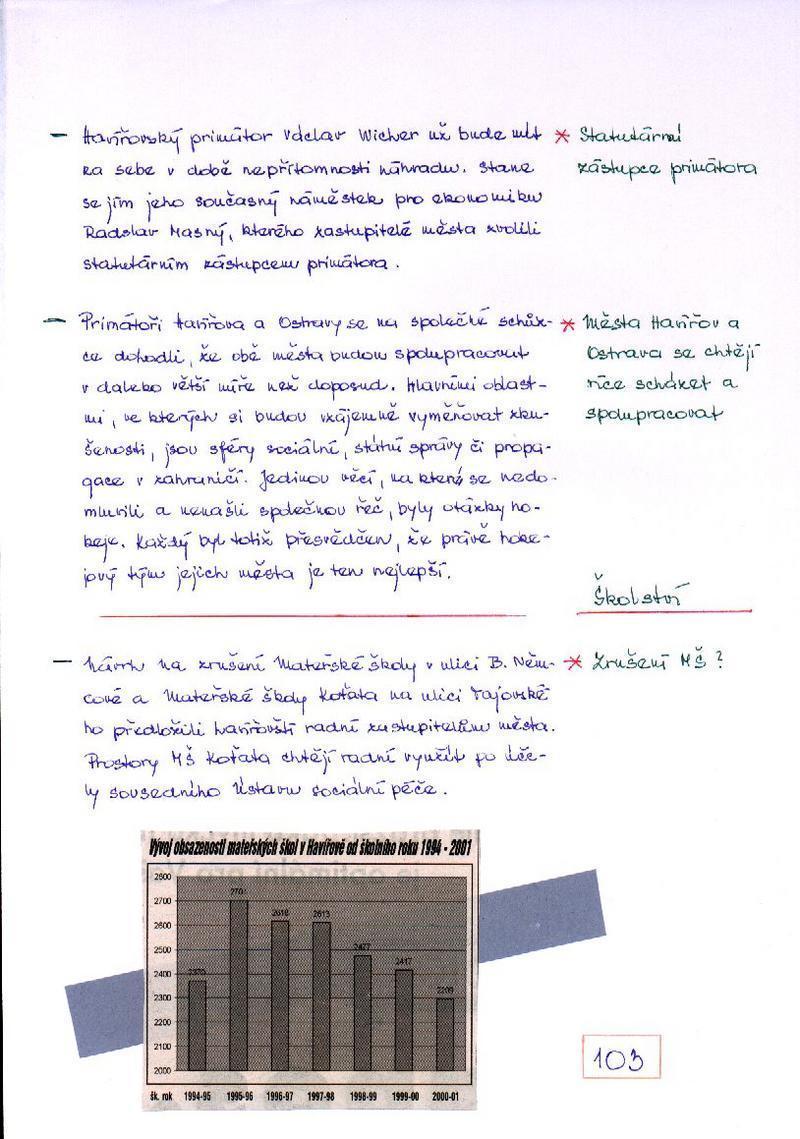 – Havířovský primátor Václav Wicher už bude mít
za sebe v době nepřítomnosti náhradu. Stane
se jím jeho současný náměstek pro ekonomiku
Radslav Masný, kterého zastupitelé města zvolili
statutárním zástupcem primátora.
* Statutární
zástupce primátora
– Primátoři Havířova a Ostravy se na společné schůz-
ce dohodli, že obě města budou spolupracovat
v daleko větší míře než doposud. Hlavními oblast-
mi, ve kterých si budou vzájemně vyměňovat zku-
šenosti, jsou sféry sociální, státní správy či propa-
gace v zahraničí. Jedinou věcí, na které se nedo-
mluvili a nenašli společnou řeč, byly otázky ho-
keje. Každý byl totiž přesvědčen, že právě hoke-
jový tým jejich města je ten nejlepší.
* Města Havířov a
Ostrava se chtějí
více scházet a
spolupracovat
Školství
– Návrh na zrušení Mateřské školy v ulici B. Něm-
cové a Mateřské školy Koťata na ulici Tajovské
ho předložili havířovští radní zastupitelům města.
Prostory MŠ Koťata chtějí radní využít po úče-
ly sousedního Ústavu sociální péče.
* Zrušení MŠ?
Vývoj obsazenosti mateřských škol v Havířově od školního roku 1994 - 2001
2800
2700
2600
2500
2400
2300
2200
2100
2000
2370
2701
2618
2613
2477
2417
šk. rok 1994-95 1995-96 1996-97 1997-98 1998-99 1999-00 2000-01
103